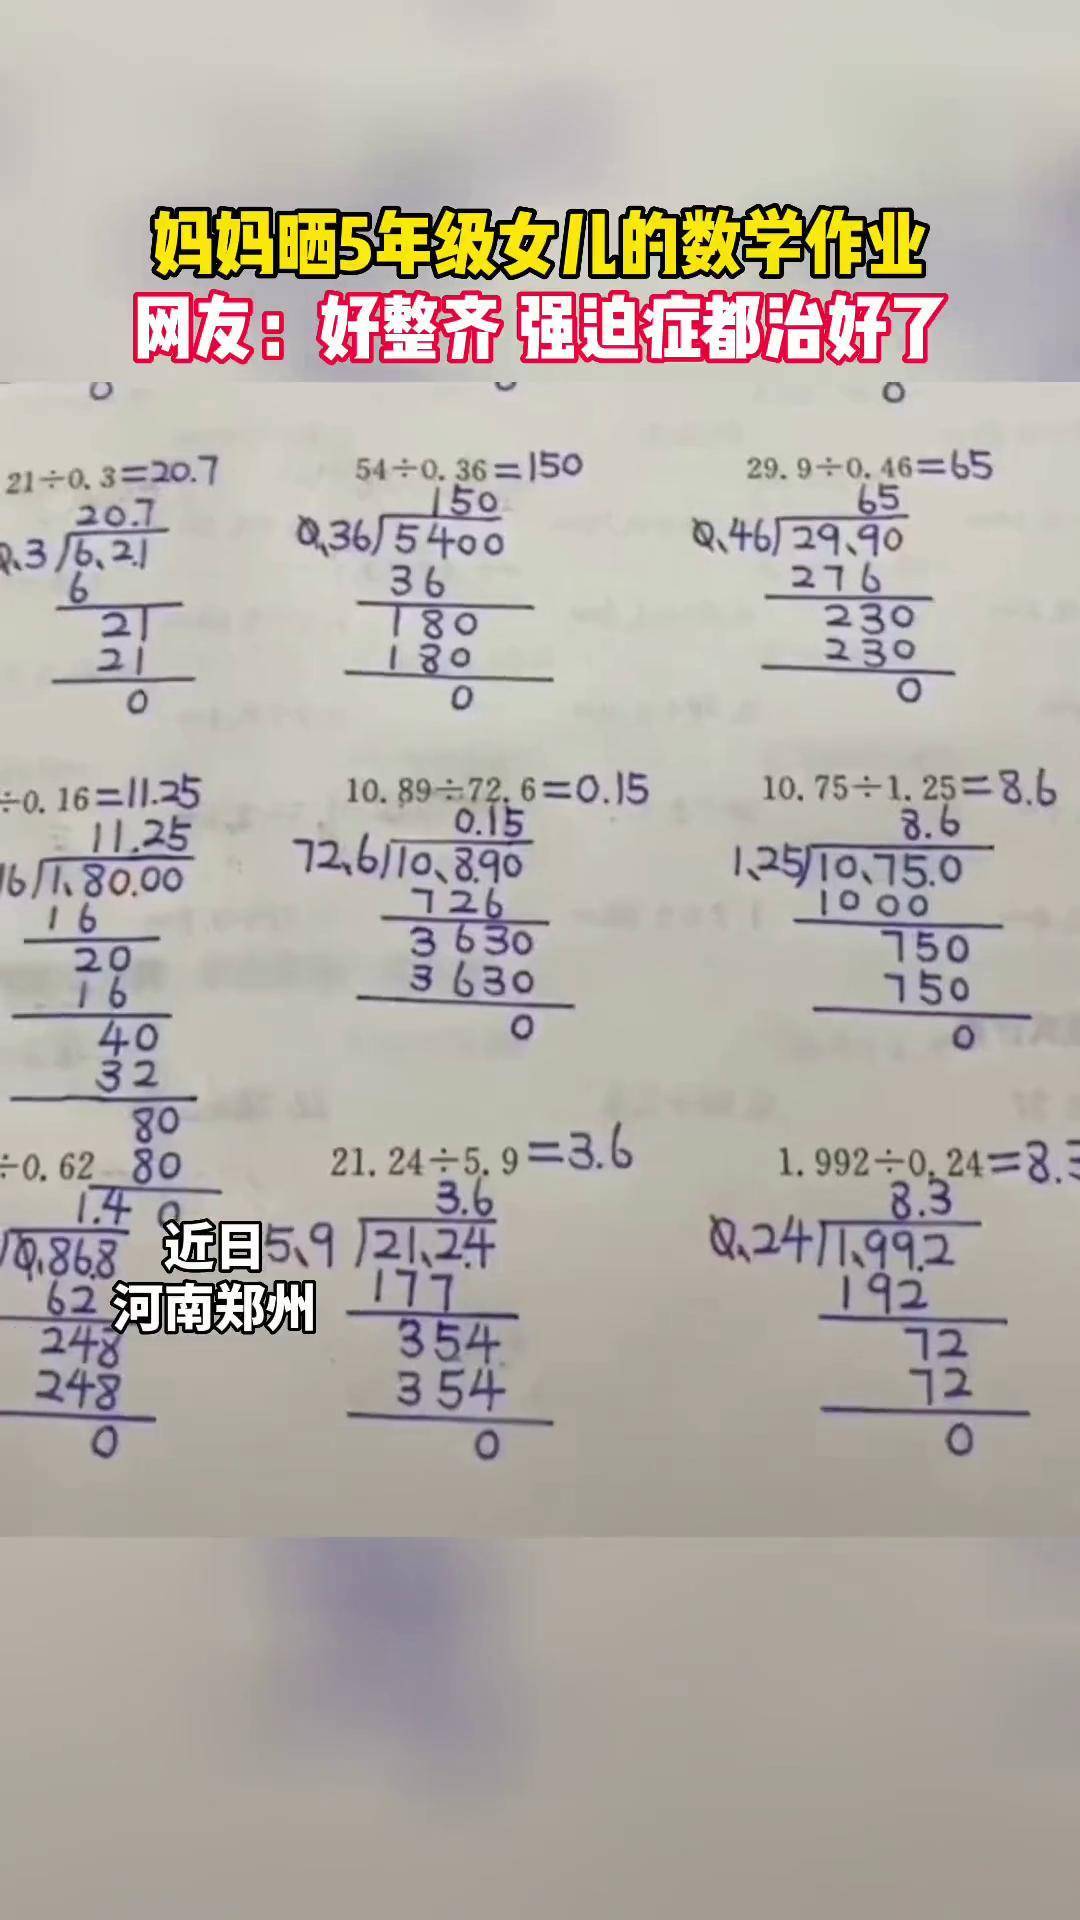 妈妈晒5年级女儿的数学作业
网友：好整齐 强迫症都治好了
0
0
21÷0.3=20.7
20.7
0.3 6.21
6
21
21
0
54÷0.36=150
150
0.36 5400
36
180
180
0
29.9÷0.46=65
65
0.46 29.90
276
230
230
0
÷0.16=11.25
11.25
16 1.80.00
16
20
16
40
32
80
80
0
10.89÷72.6=0.15
0.15
72.6 10.8.90
726
3630
3630
0
10.75÷1.25=8.6
8.6
1.25 10.75.0
1000
750
750
0
÷0.62
1.4
0.86.8
62
248
248
0
21.24÷5.9=3.6
3.6
5.9 21.2.4
177
354
354
0
1.992÷0.24=8.3
8.3
0.24 1.99.2
192
72
72
0
近日
河南郑州